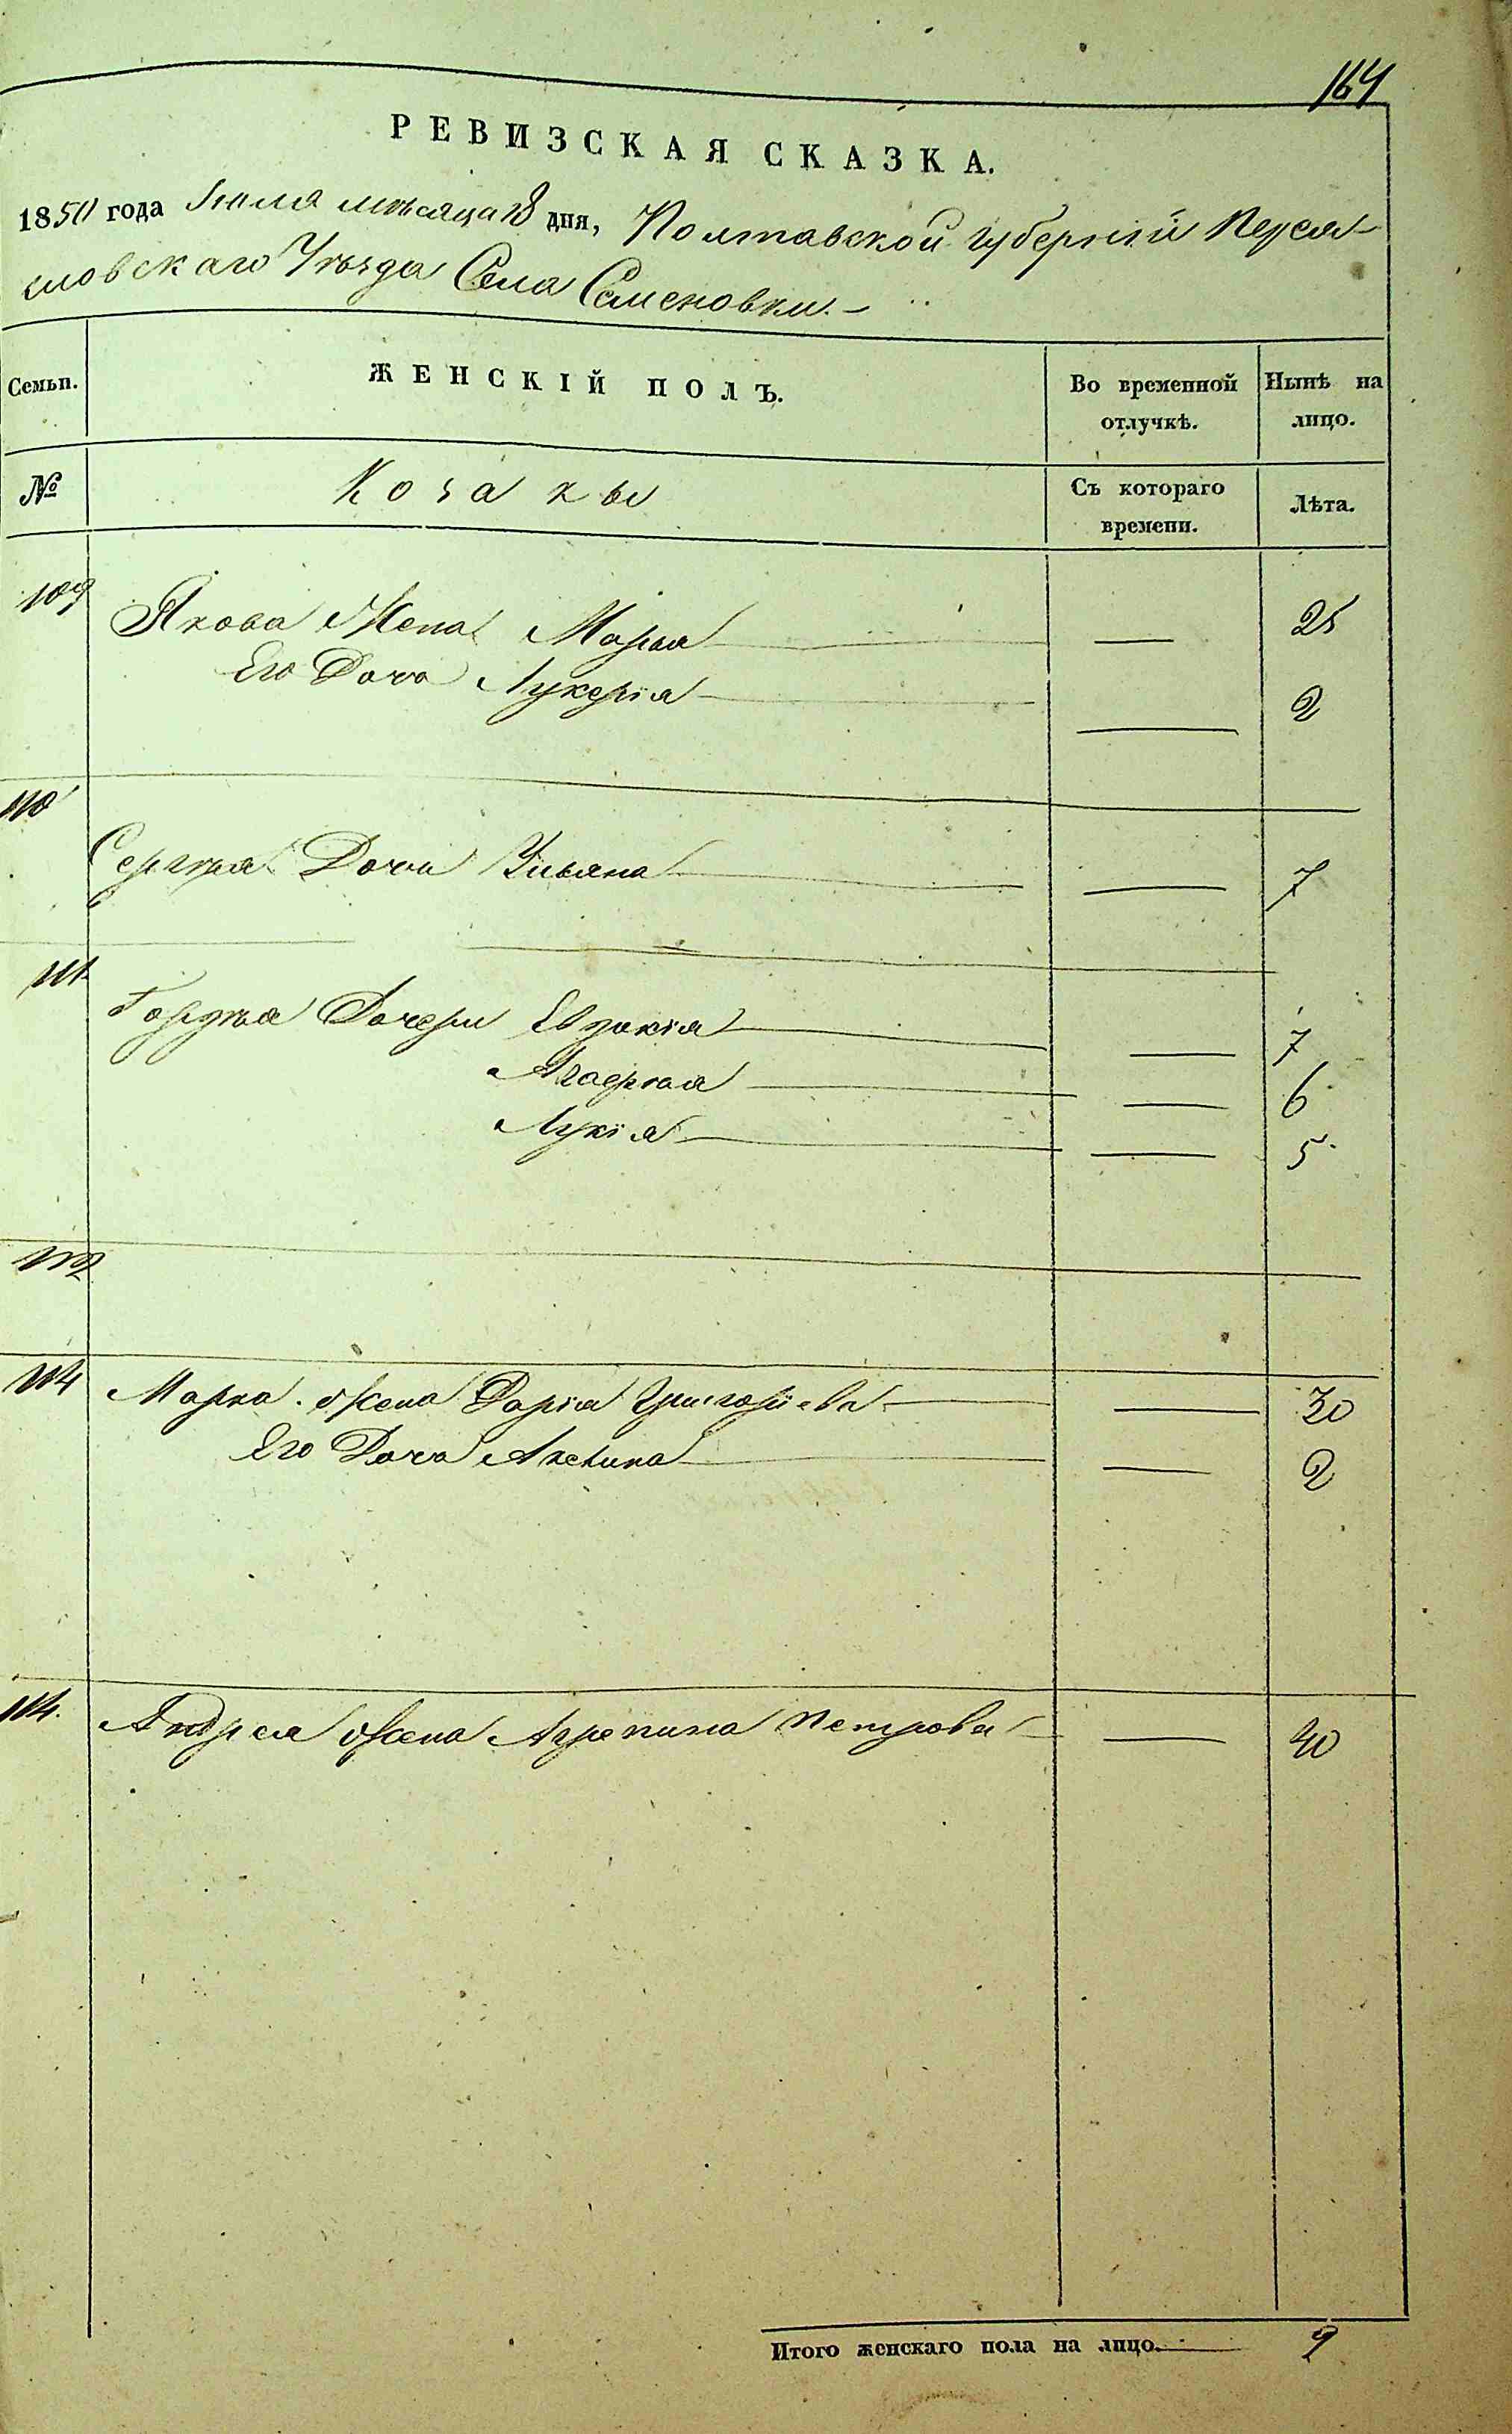 164
РЕВИЗСКАЯ СКАЗКА.
1850 года Іюля мѣсяца 18 дня, Полтавской губерніи Перея-
словскаго Уѣзда Села Семеновки. –
Семьи. ЖЕНСКІЙ ПОЛЪ. Во временной отлучкѣ. Нынѣ на лицо.
№ Козаки Съ котораго времени. Лѣта.
109
Якова Жена Марья — 25
Его Дочь Лукерія — 2
110
Сергѣя Дочь Ульяна — 7
111
Гордѣя Дочери Евдокія — 7
Агафія — 6
Лукія — 5
112
114 Марка жена Дарія Григоріева — 30
Его Дочь Акелина — 2
114. Андрея жена Агрепина Петрова — 40
Итого женскаго пола на лицо. 9